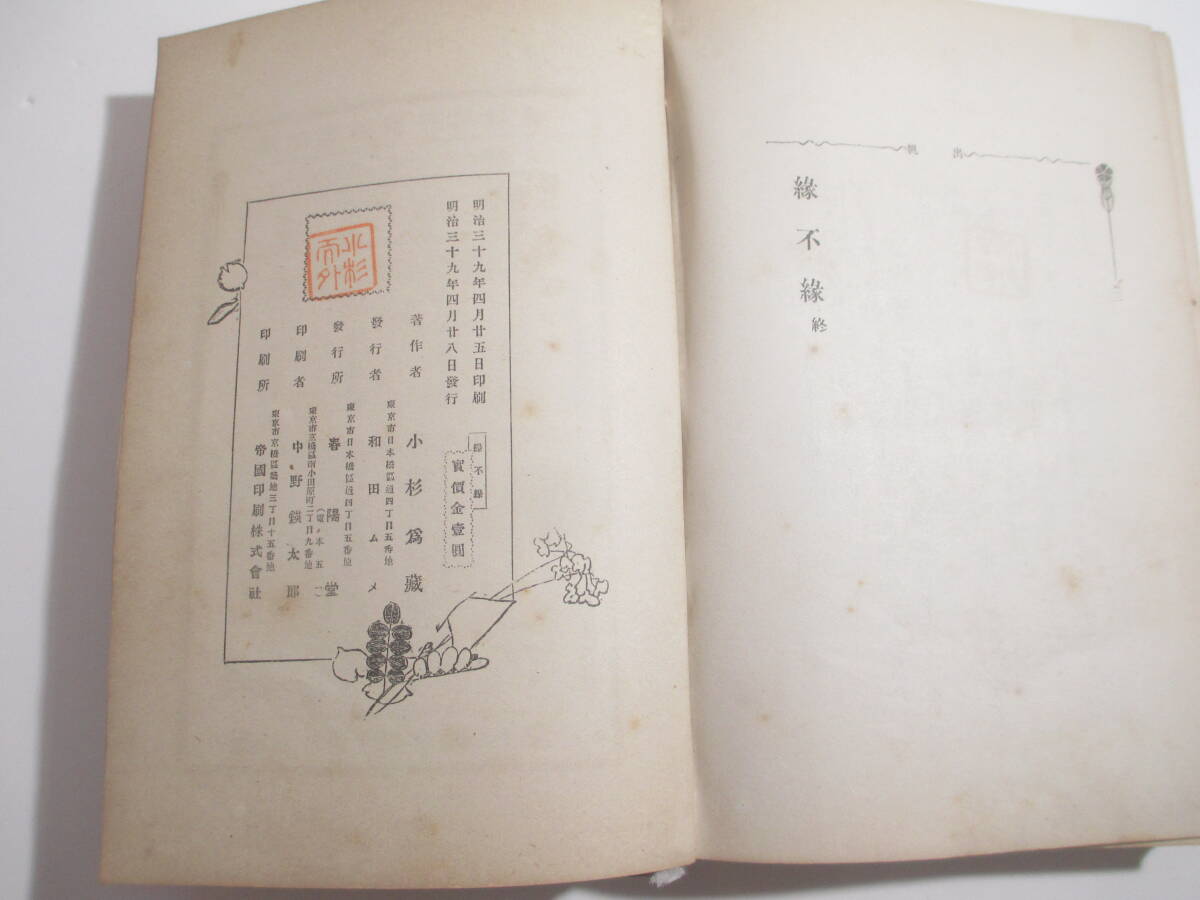 出帆
三
緣不緣 終
明治三十九年四月廿五日印刷
明治三十九年四月廿八日發行
緣不緣
實價金壹圓
著作者 小杉爲藏
東京市日本橋區通四丁目五番地
發行者 和田ムメ
東京市日本橋區通四丁目五番地
發行所 春陽堂
(電、本五一)
東京市京橋區南小田原町二丁目九番地
印刷者 中野鍈太郎
東京市京橋區築地三丁目十五番地
印刷所 帝國印刷株式會社
小杉天外